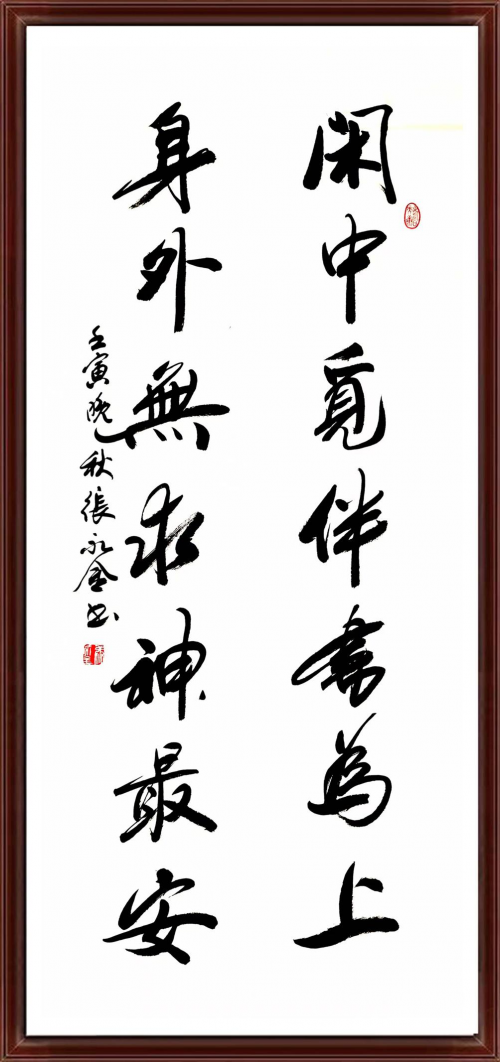 閑中覓伴書為上
身外無求神最安
壬寅晚秋張永金書